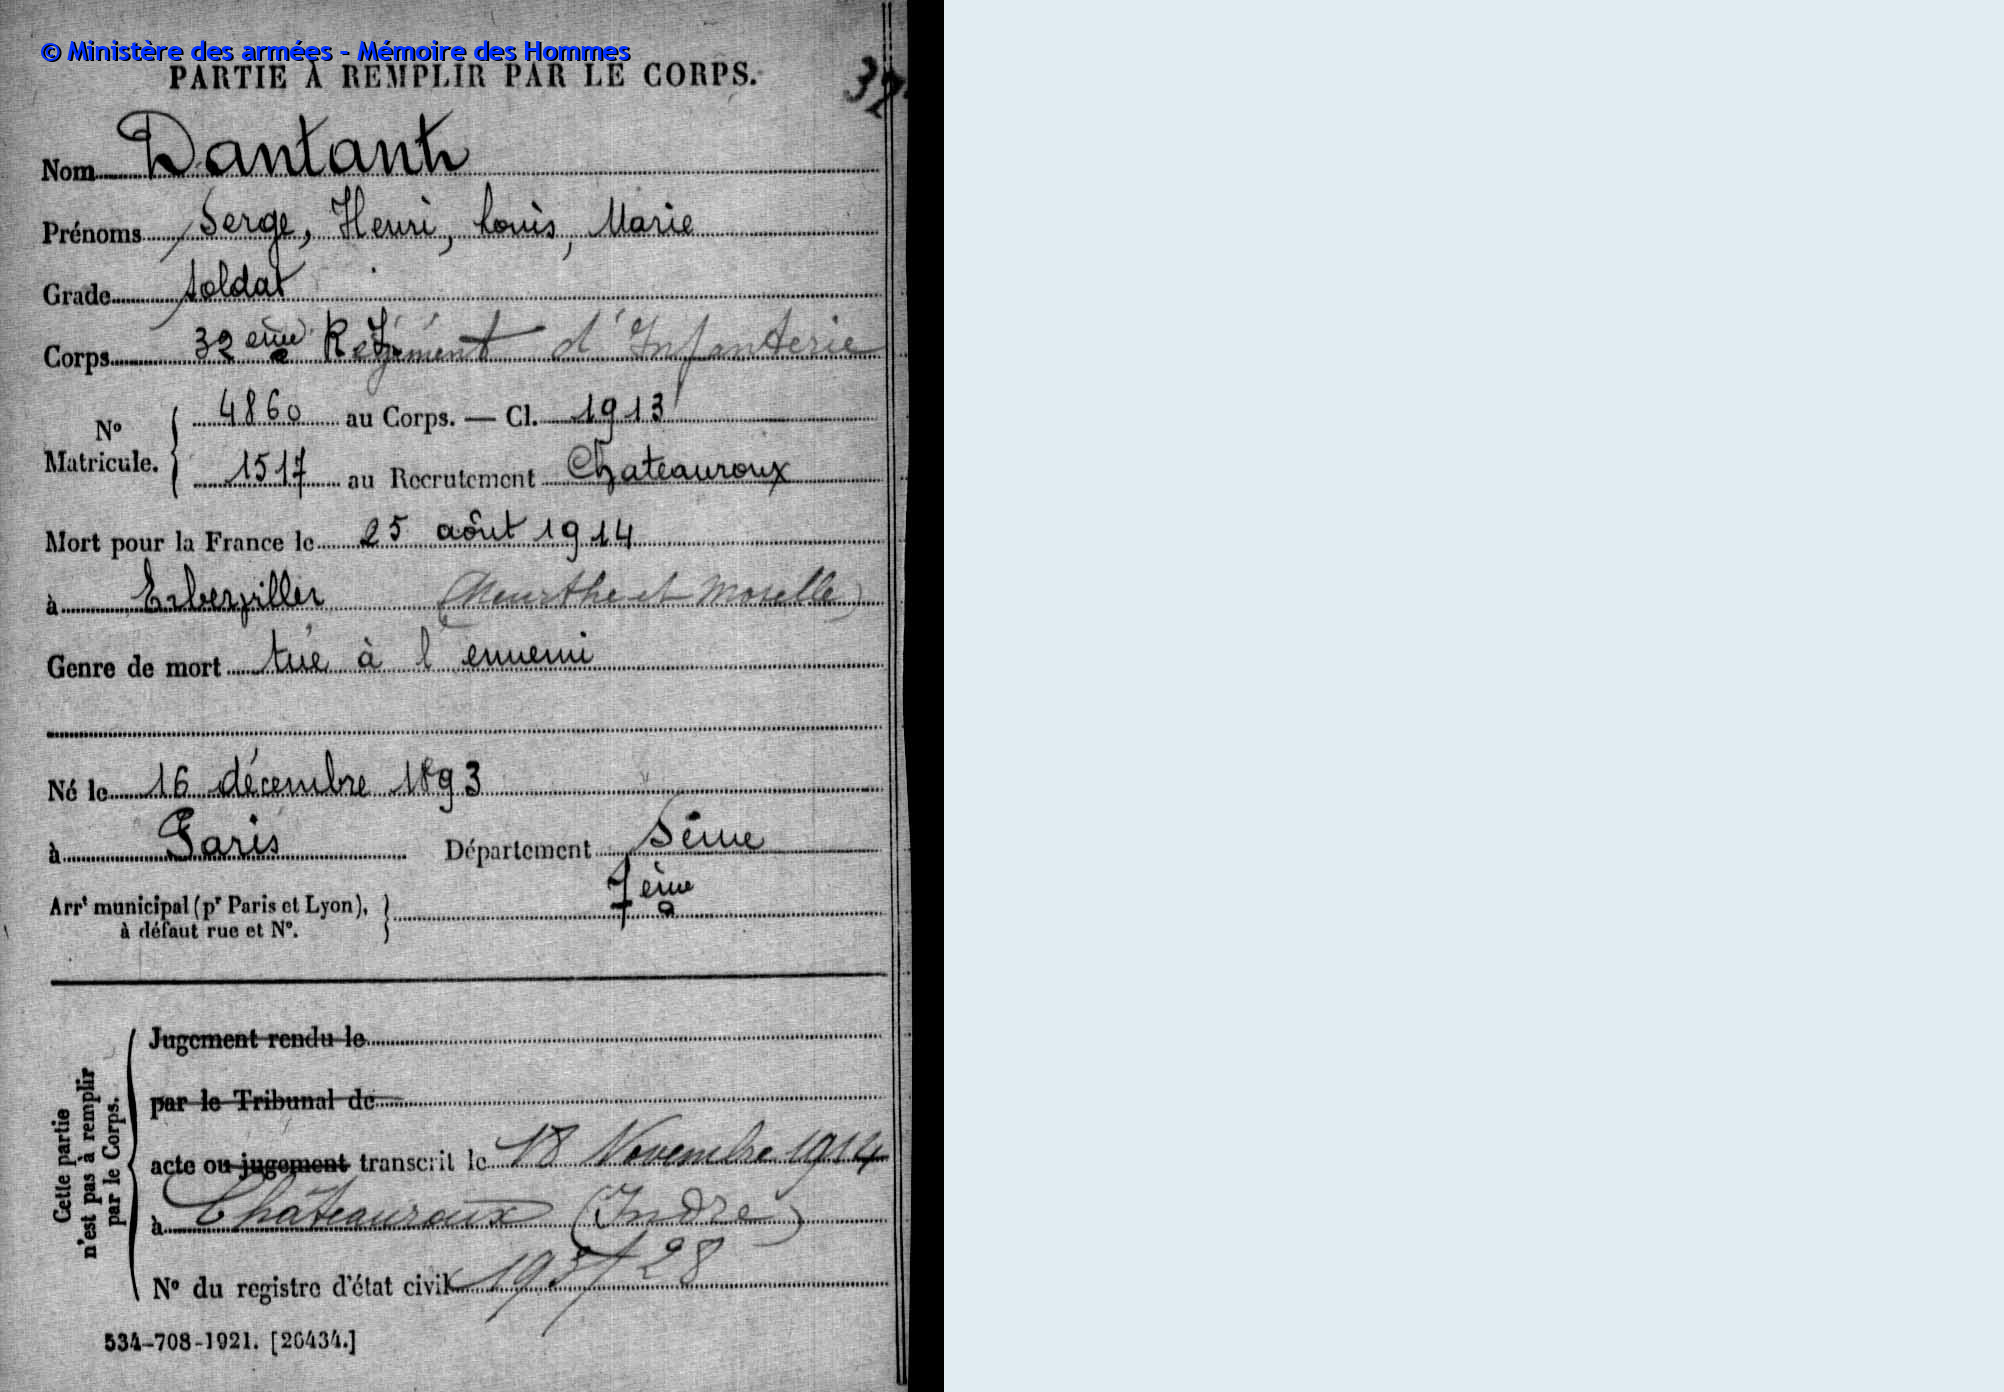 © Ministère des armées - Mémoire des Hommes
PARTIE À REMPLIR PAR LE CORPS.
32
Nom Dantant
Prénoms Serge, Henri, Louis, Marie
Grade Soldat
Corps 32 ème Régiment d'Infanterie
N° Matricule. 4860 au Corps. — Cl. 1913
1517 au Recrutement Chateauroux
Mort pour la France le 25 août 1914
à (Meurthe et Moselle)
Genre de mort tué à l'ennemi
Né le 16 décembre 1893
à Paris Département Seine
Arrt municipal (pr Paris et Lyon), à défaut rue et N°. 7 ème
Cette partie n'est pas à remplir par le Corps.
Jugement rendu le
par le Tribunal de
acte ou jugement transcrit le 18 Novembre 1914
à Châteauroux (Indre)
N° du registre d'état civil 193/28
534-708-1921. [26434.]